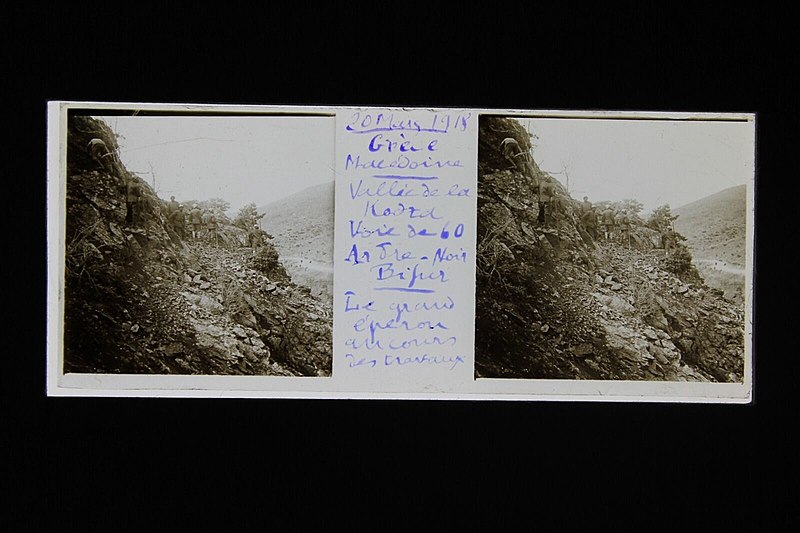 20 Mars 1918
Grèce
Macédoine
Vallée de la
Kodza
Voie de 60
Bifur
Le grand
éperon
au cours
des travaux